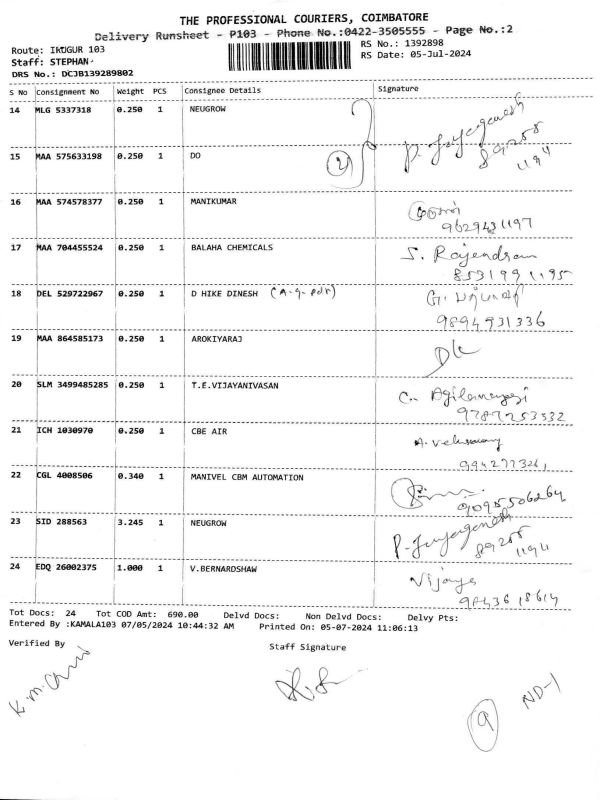 THE PROFESSIONAL COURIERS, COIMBATORE
Delivery Runsheet - P103 - Phone No.:0422-3505555 - Page No.:2
Route: IKUGUR 103
RS No.: 1392898
Staff: STEPHAN
RS Date: 05-Jul-2024
DRS No.: DCJB139289802
S No Consignment No Weight PCS Consignee Details Signature
14 MLG 5337318 0.250 1 NEUGROW
15 MAA 575633198 0.250 1 DO (2) P. Jayaganesh 89255 1194
16 MAA 574578377 0.250 1 MANIKUMAR
9629431197
17 MAA 704455524 0.250 1 BALAHA CHEMICALS S. Rajendran
8531991195
18 DEL 529722967 0.250 1 D HIKE DINESH
9894931336
19 MAA 864585173 0.250 1 AROKIYARAJ
20 SLM 3499485285 0.250 1 T.E.VIJAYANIVASAN
9787253532
21 ICH 1030970 0.250 1 CBE AIR
22 CGL 4008506 0.340 1 MANIVEL CBM AUTOMATION
9095506264
23 SID 288563 3.245 1 NEUGROW P. Jayaganesh
89255
1194
24 EDQ 26002375 1.000 1 V.BERNARDSHAW Vijaya
9843618614
Tot Docs: 24 Tot COD Amt: 690.00 Delvd Docs: Non Delvd Docs: Delvy Pts:
Entered By :KAMALA103 07/05/2024 10:44:32 AM Printed On: 05-07-2024 11:06:13
Verified By Staff Signature
9 ND-1